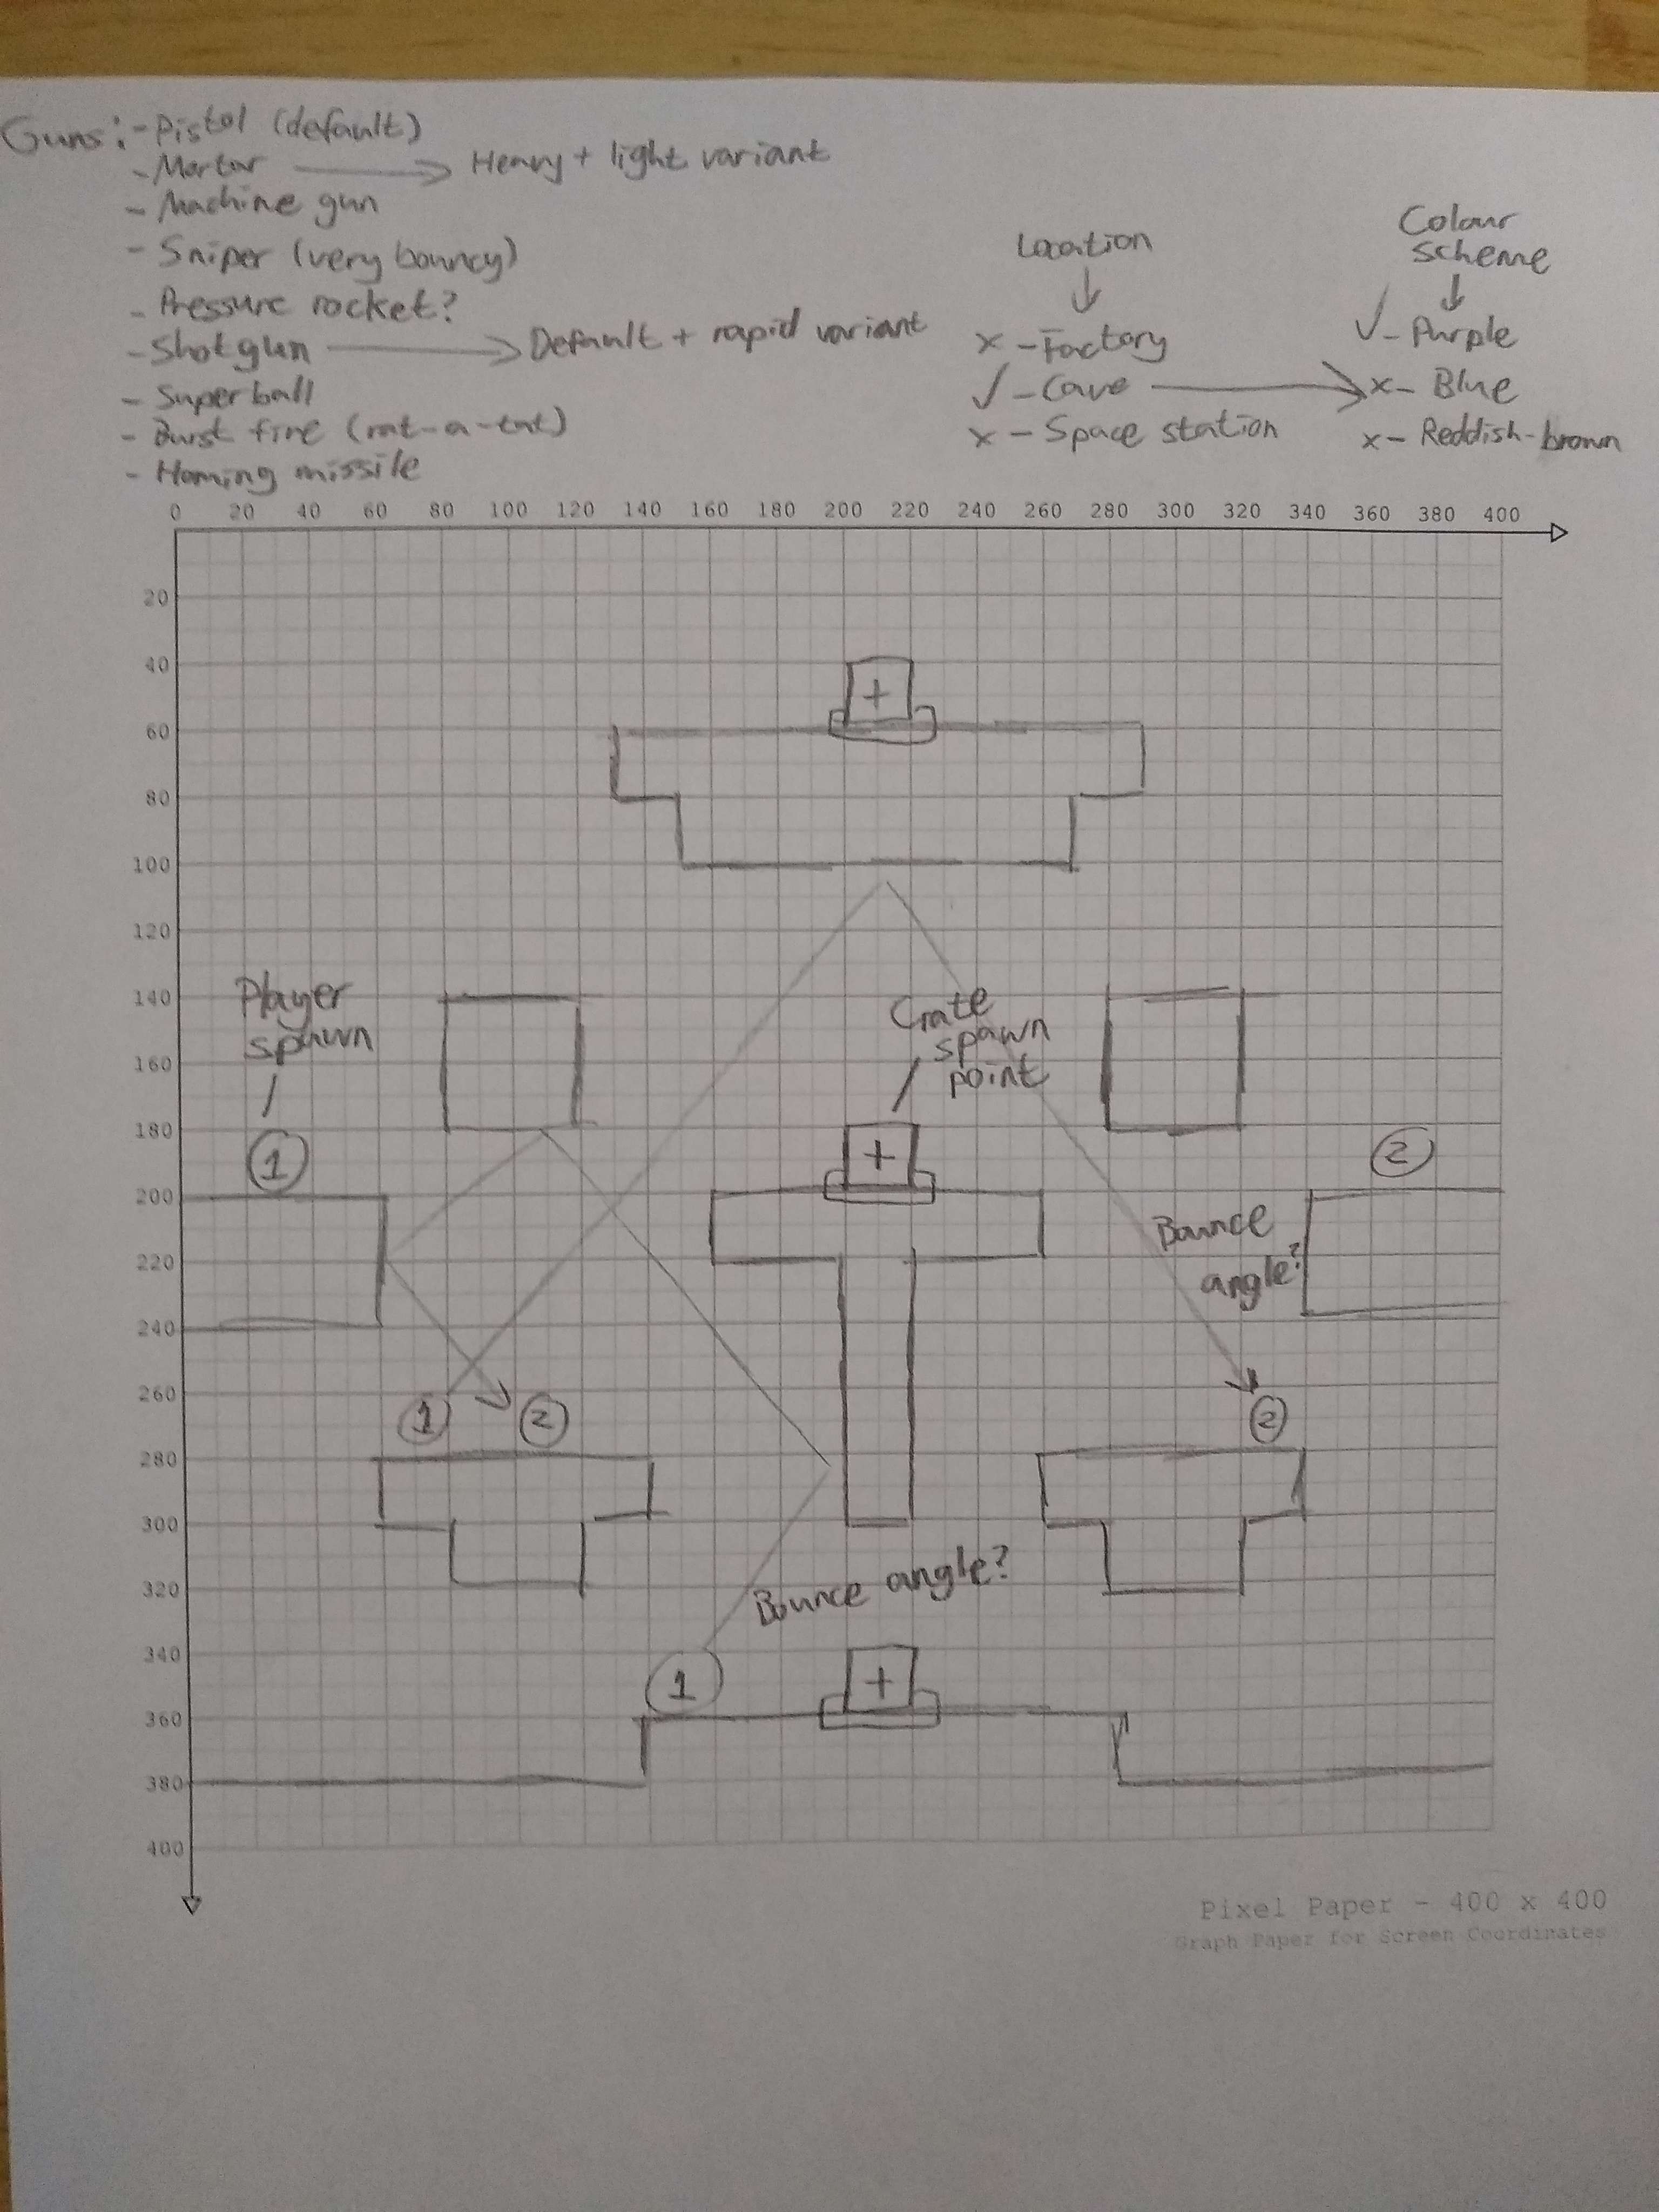 Guns: - Pistol (default)
- Mortar → Heavy + light variant
- Machine gun
- Sniper (very bouncy)
- Pressure rocket?
- Shotgun → Default + rapid variant
- Superball
- Burst fire (rat-a-tat)
- Homing missile
Location
↓
x - Factory
✓ - Cave →
x - Space station
Colour
scheme
↓
✓ - Purple
x - Blue
x - Reddish-brown
0 20 40 60 80 100 120 140 160 180 200 220 240 260 280 300 320 340 360 380 400
20
40
+
60
80
100
120
140
Player
spawn
Crate
spawn
point
160
180
1
+
2
200
Bounce
angle?
220
240
260
1 2
2
280
300
320
Bounce angle?
340
1
+
360
380
400
Pixel Paper - 400 x 400
Graph Paper for Screen Coordinates